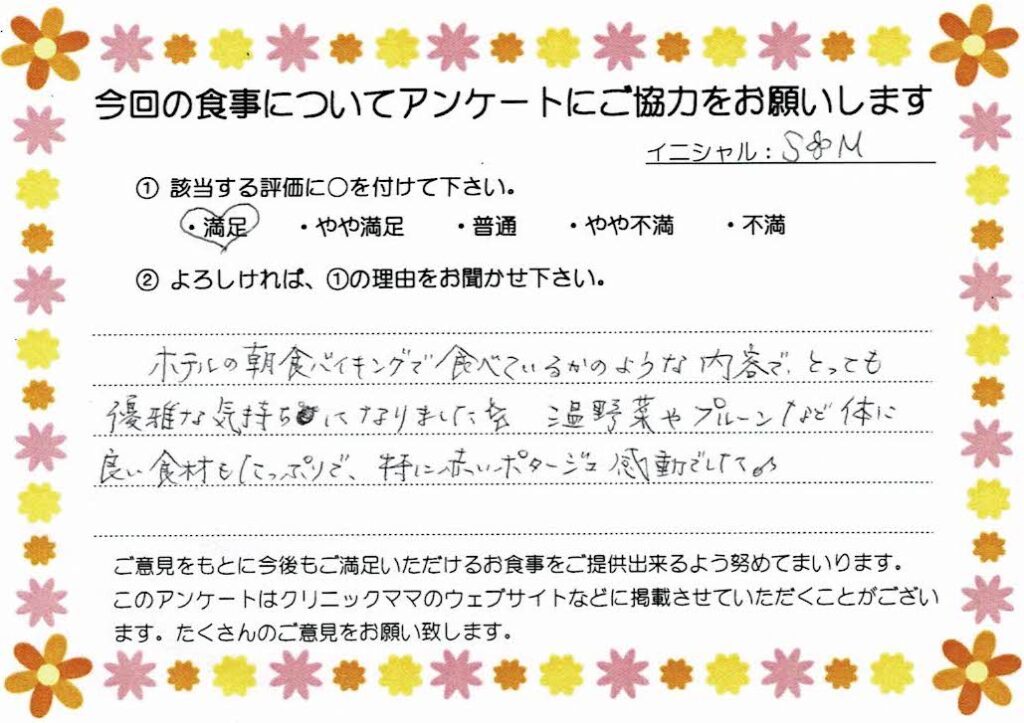 今回の食事についてアンケートにご協力をお願いします
イニシャル：S&M
① 該当する評価に○を付けて下さい。
・満足 ・やや満足 ・普通 ・やや不満 ・不満
② よろしければ、①の理由をお聞かせ下さい。
ホテルの朝食バイキングで食べているかのような内容で、とっても
優雅な気持ちになりました 温野菜やプルーンなど体に
良い食材もたっぷりで、特に赤いポタージュ感動でした♪
ご意見をもとに今後もご満足いただけるお食事をご提供出来るよう努めてまいります。
このアンケートはクリニックママのウェブサイトなどに掲載させていただくことがござい
ます。たくさんのご意見をお願い致します。